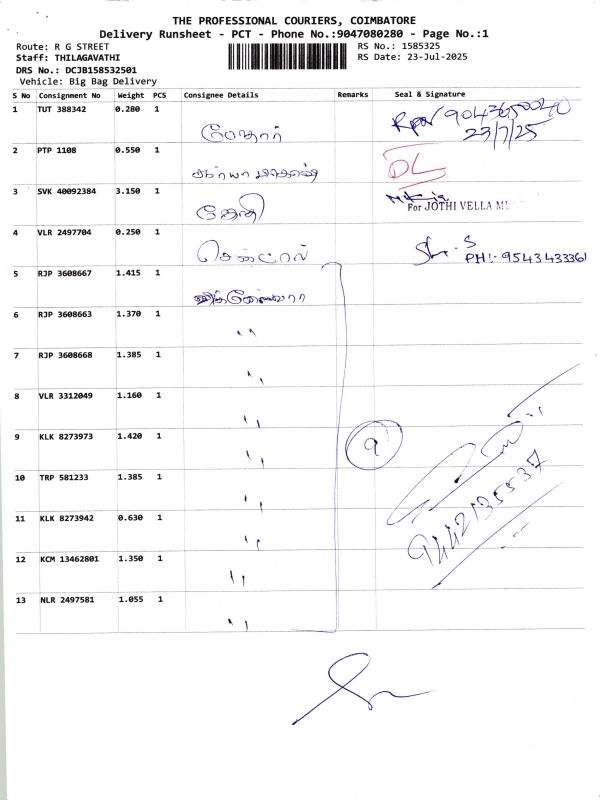 THE PROFESSIONAL COURIERS, COIMBATORE
Delivery Runsheet - PCT - Phone No.:9047080280 - Page No.:1
Route: R G STREET
RS No.: 1585325
Staff: THILAGAVATHI
RS Date: 23-Jul-2025
DRS No.: DCJB158532501
Vehicle: Big Bag Delivery
S No Consignment No Weight PCS Consignee Details Remarks Seal & Signature
1 TUT 388342 0.280 1
23/7/25
2 PTP 1108 0.550 1 DL
3 SVK 40092384 3.150 1 தேனி
For JOTHI VELLA
4 VLR 2497704 0.250 1 சென்ட்ரல்
PH:- 9543433361
5 RJP 3608667 1.415 1
6 RJP 3608663 1.370 1 "
7 RJP 3608668 1.385 1 "
8 VLR 3312049 1.160 1 "
9 KLK 8273973 1.420 1 " 9
10 TRP 581233 1.385 1 "
9442135537
11 KLK 8273942 0.630 1 "
12 KCM 13462801 1.350 1 "
13 NLR 2497581 1.055 1 "